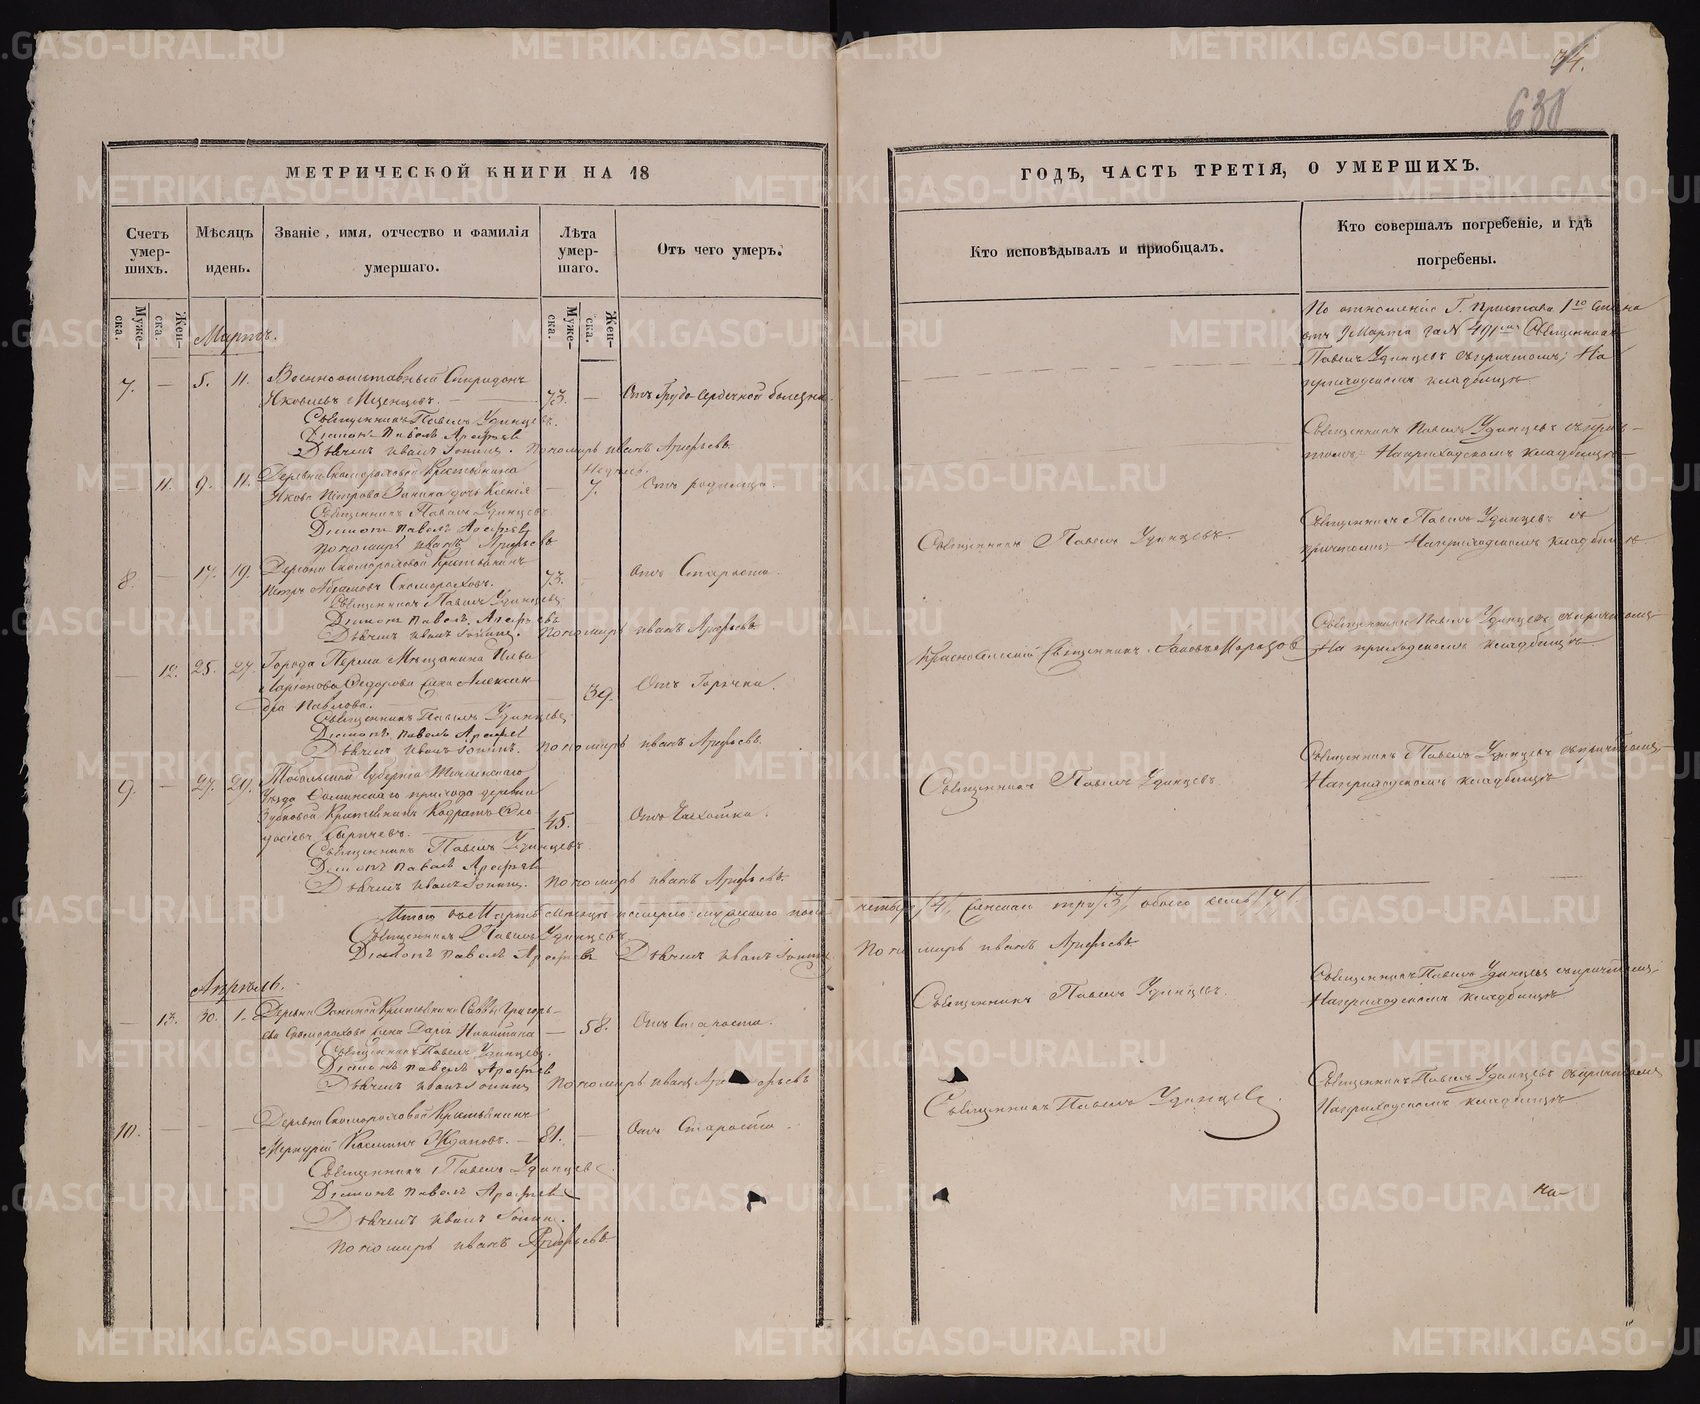 74.
630
МЕТРИЧЕСКОЙ КНИГИ НА 18
ГОДЪ, ЧАСТЬ ТРЕТІЯ, О УМЕРШИХЪ.
Счетъ умер-шихъ.
Мѣсяцъ идень.
Званіе, имя, отчество и фамилія умершаго.
Лѣта умер-шаго.
Отъ чего умеръ.
Кто исповѣдывалъ и пріобщалъ.
Кто совершалъ погребеніе, и гдѣ погребены.
Муже-ска.
Жен-ска.
Муже-ска.
Жен-ска.
Мартъ.
По отношенію Г. Пристава 1го Стана
отъ 9 Марта за N 491 Священникъ
Павелъ Удинцевъ съ причтомъ; На
приходскомъ кладбищѣ
7. — 5. 11. Военноотставный Спиридонъ
Яковлевъ 73. — Отъ Грудо-Сердечной болезни.
Священникъ Павелъ Удинцевъ.
Діаконъ Павелъ Арефьевъ
Дьячекъ Иванъ Пономарь Иванъ
Священникъ Павелъ Удинцевъ съ прич-
томъ. На приходскомъ кладбищѣ
— 11. 9. 11. Деревни Скомороховой Крестьянина
Якова Петрова Зинина дочь Ксенія — 7. Недѣль. Отъ родимца.
Священникъ Павелъ Удинцевъ
Діаконъ Павелъ Арефьевъ
Пономарь Иванъ
Священникъ Павелъ Удинцевъ.
Священникъ Павелъ Удинцевъ съ
причтомъ; На приходскомъ кладбищѣ
8. — 17. 19. Деревни Скомороховой Крестьянинъ
Петръ Абрамовъ Скомороховъ. 73. — Отъ Старости.
Священникъ Павелъ Удинцевъ
Діаконъ Павелъ Арефьевъ
Дьячекъ Иванъ Пономарь Иванъ
Священникъ Павелъ Удинцевъ съ причтомъ
На приходскомъ кладбищѣ
— 12. 25. 27. Города Перми Мѣщанина Ильи
Ларіонова Федорова жена Алексан-
дра Павлова. — 39. Отъ Горячки.
Священникъ Павелъ Удинцевъ
Діаконъ Павелъ Арефьевъ
Дьячекъ Иванъ Пономарь Иванъ
Священникъ Іаковъ Морозовъ
Священникъ Павелъ Удинцевъ съ причтомъ
На приходскомъ кладбищѣ
9. — 27. 29. Тобольской Губерніи
Уѣзда прихода деревни
Крестьянинъ Кодратъ Фео-
досіевъ 45. — Отъ Чахотки.
Священникъ Павелъ Удинцевъ
Діаконъ Павелъ Арефьевъ
Дьячекъ Иванъ Пономарь Иванъ
Священникъ Павелъ Удинцевъ
Итого въ Мартѣ Мѣсяцѣ померло: мужескаго пола четыре /4/, женскаго три /3/ обоего семь /7/.
Священникъ Павелъ Удинцевъ
Діаконъ Павелъ Арефьевъ Дьячекъ Иванъ Пономарь Иванъ
Апрѣль.
— 13. 30. 1. Деревни Зининой Крестьянина Саввы Григорь-
ева Скоморохова жена Дарья Никитина — 58. Отъ Старости.
Священникъ Павелъ Удинцевъ.
Діаконъ Павелъ Арефьевъ
Дьячекъ Иванъ Пономарь Иванъ
Священникъ Павелъ Удинцевъ.
Священникъ Павелъ Удинцевъ съ причтомъ
На приходскомъ кладбищѣ
10. — — — Деревни Скомороховой Крестьянинъ
Меркурій Ждановъ. — 81. — Отъ Старости.
Священникъ Павелъ Удинцевъ
Діаконъ Павелъ Арефьевъ
Дьячекъ Иванъ
Пономарь Иванъ
Священникъ Павелъ Удинцевъ.
Священникъ Павелъ Удинцевъ съ причтомъ
На приходскомъ кладбищѣ
На-
METRIKI.GASO-URAL.RU